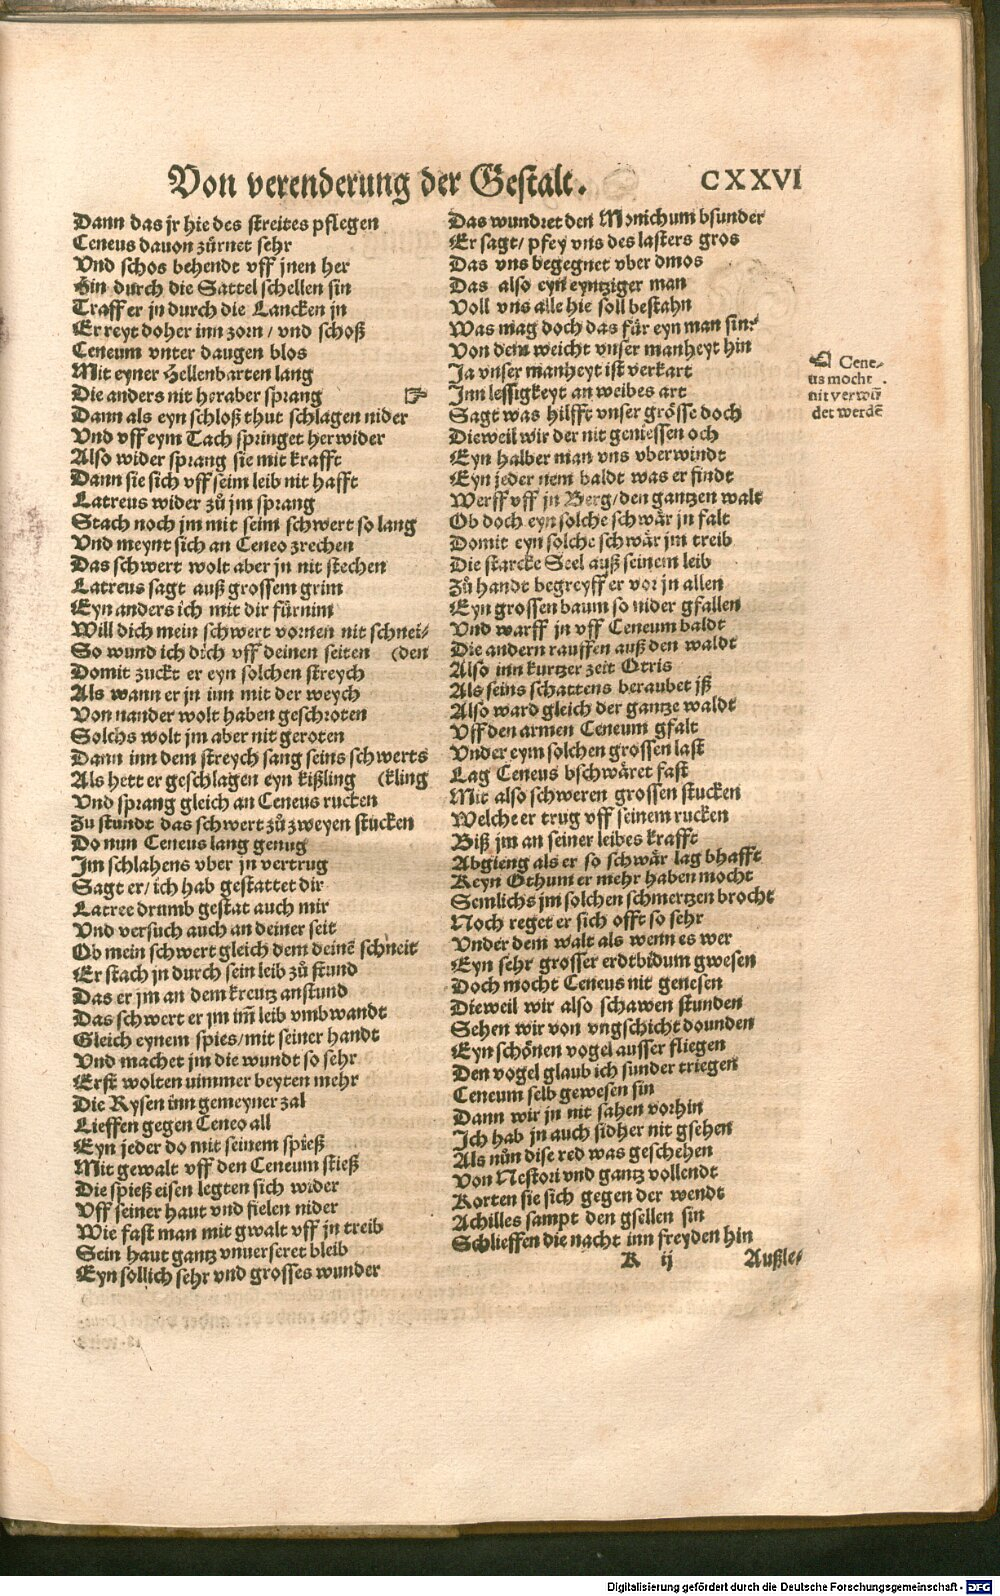 Von verenderung der Gestalt. CXXVI
Dann das jr hie des streites pflegen
Ceneus dauon zürnet sehr
Vnd schos behendt vff jnen her
Hin durch die Sattel schellen sin
Traff er jn durch die Lancken jn
Er reyt doher inn zorn / vnd schoß
Ceneum vnter daugen blos
Mit eyner Hellenbarten lang
Die anders nit heraber sprang ☞
Dann als eyn schloß thut schlagen nider
Vnd vff eym Tach springet herwider
Also wider sprang sie mit krafft
Dann sie sich vff seim leib nit hafft
Latreus wider zů jm sprang
Stach noch jm mit seim schwert so lang
Vnd meynt sich an Ceneo zrechen
Das schwert wolt aber jn nit stechen
Latreus sagt auß grossem grim
Eyn anders ich mit dir fürnim
Will dich mein schwert vornen nit schnei-
So wund ich dich vff deinen seiten (den
Domit zuckt er eyn solchen streych
Als wann er jn inn mit der weych
Von nander wolt haben geschroten
Solchs wolt jm aber nit geroten
Dann inn dem streych sang seins schwerts
Als hett er geschlagen eyn kißling (kling
Vnd sprang gleich an Ceneus rucken
Zu stundt das schwert zů zweyen stucken
Do nun Ceneus lang genug
Im schlahens vber jn vertrug
Sagt er / ich hab gestattet dir
Latree drumb gestat auch mir
Vnd versuch auch an deiner seit
Ob mein schwert gleich dem deinē schneit
Er stach jn durch sein leib zů stund
Das er jm an dem kreutz anstund
Das schwert er jm im̄ leib vmbwandt
Gleich eynem spies / mit seiner handt
Vnd machet jm die wundt so sehr
Erst wolten nimmer beyten mehr
Die Rysen inn gemeyner zal
Lieffen gegen Ceneo all
Eyn jeder do mit seinem spieß
Mit gewalt vff den Ceneum stieß
Die spieß eisen legten sich wider
Vff seiner haut vnd fielen nider
Wie fast man mit gwalt vff jn treib
Sein haut gantz vnuerseret bleib
Eyn sollich sehr vnd grosses wunder
Das wundret den Monichum bsunder
Er sagt / pfey vns des lasters gros
Das vns begegnet vber dmos
Das also eyn eyntziger man
Voll vns alle hie soll bestahn
Was mag doch das für eyn man sin?
Von dem weicht vnser manheyt hin
Ja vnser manheyt ist verkart
Inn lessigkeyt an weibes art
Sagt was hilfft vnser grösse doch
Dieweil wir der nit geniessen och
Eyn halber man vns vberwindt
Eyn jeder nem baldt was er findt
Werff vff jn Berg / den gantzen walt
Ob doch eyn solche schwär jn falt
Domit eyn solche schwär jm treib
Die starcke Seel auß seinem leib
Zů handt begreyff er vor jn allen
Eyn grossen baum so nider gfallen
Vnd warff jn vff Ceneum baldt
Die andern rauffen auß den waldt
Also inn kurtzer zeit Otris
Als seins schattens beraubet jß
Also ward gleich der gantze waldt
Vff den armen Ceneum gfalt
Vnder eym solchen grossen last
Lag Ceneus bschwäret fast
Mit also schweren grossen stucken
Welche er trug vff seinem rucken
Biß jm an seiner leibes krafft
Abgieng als er so schwär lag bhafft
Keyn Othum er mehr haben mocht
Semlichs jm solchen schmertzen brocht
Noch reget er sich offt so sehr
Vnder dem walt als wenn es wer
Eyn sehr grosser erdtbidum gwesen
Doch mocht Ceneus nit genesen
Dieweil wir also schawen stunden
Sehen wir von vngschicht dounden
Eyn schönen vogel ausser fliegen
Den vogel glaub ich sunder triegen
Ceneum selb gewesen sin
Dann wir jn nit sahen vorhin
Ich hab jn auch sidher nit gsehen
Als nůn dise red was geschehen
Von Nestori vnd gantz vollendt
Korten sie sich gegen der wendt
Achilles sampt den gsellen sin
Schlieffen die nacht inn freyden hin
☜ Cene-
us mocht
nit verwū
det werdē
K ij Außle-
Digitalisierung gefördert durch die Deutsche Forschungsgemeinschaft - DFG